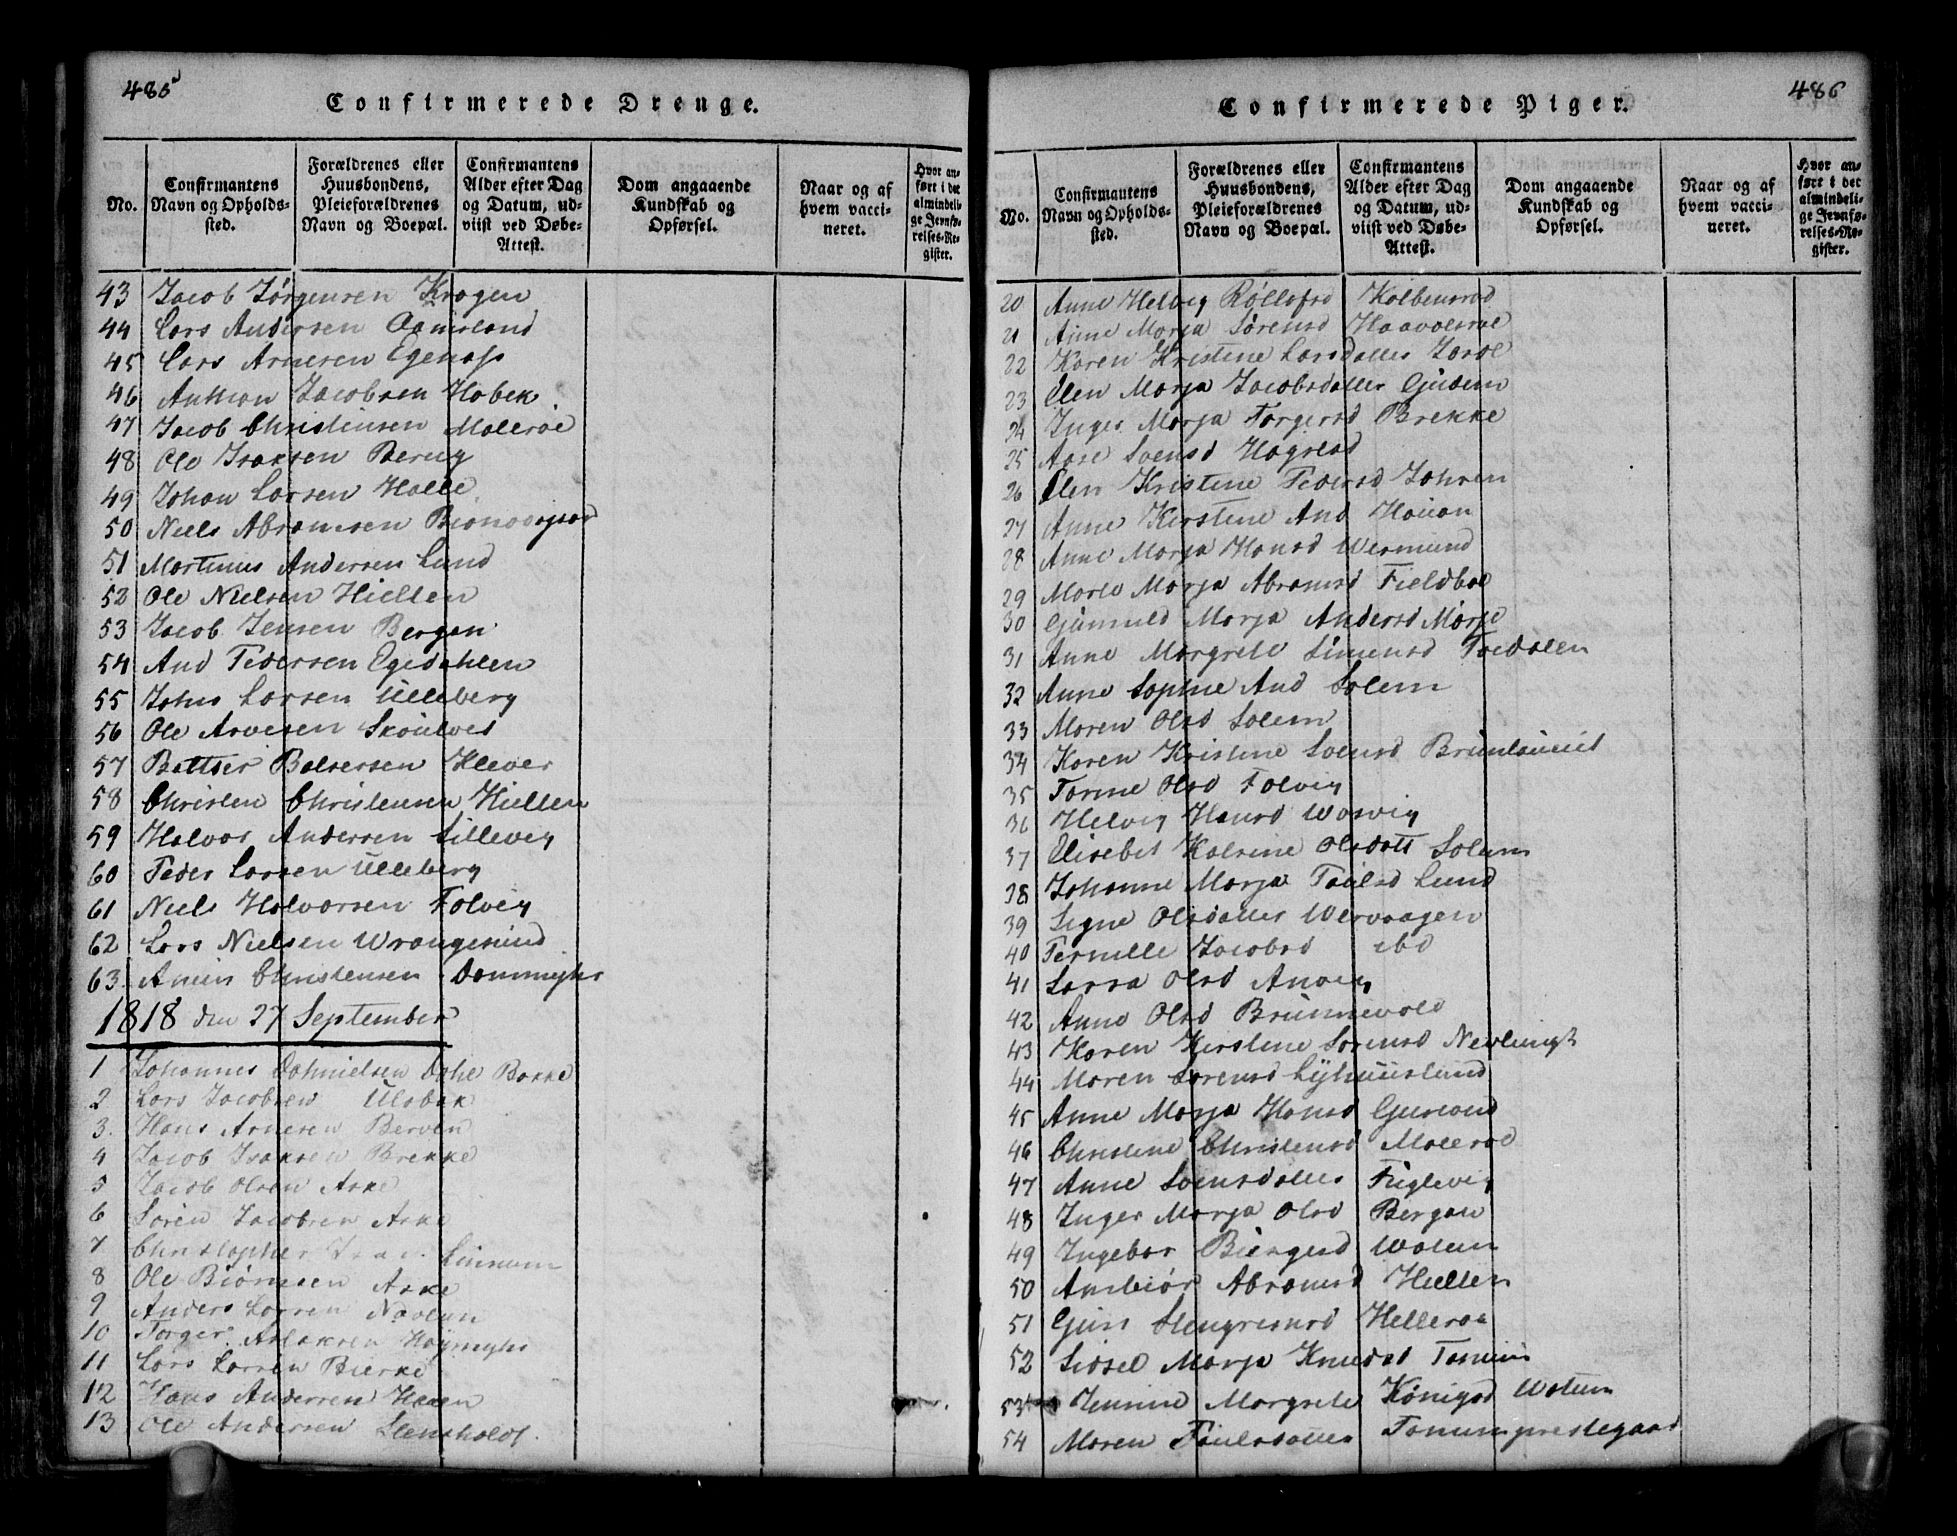 485
Confirmerede Drenge.
No.
Confirmantens Navn og Opholds-sted.
Forældrenes eller Huusbondens, Pleieforældrenes Navn og Boepæl.
Confirmantens Alder efter Dag og Datum, ud-viist ved Døbe-Attest.
Dom angaaende Kundskab og Opførsel.
Naar og af hvem vacci-neret.
Hvor an-ført i det almindeli-ge Jevnfø-relses-Re-gister.
43 Jacob Jörgensen Krogen
44 Lars Andersen
45 Lars Arnesen Egenæs
46 Anthon Jacobsen Hobek
47 Jacob Christensen Moleröe
48 Ole Isaksen Berug
49 Johan Larsen Halle
50 Niels Abramsen
51 Martinus Andersen Lund
52 Ole Nielsen Hielten
53 Jacob Jensen Bergan
54 And Pedersen Egedahlen
55 Johs Larsen Ulleberg
56 Ole Arvesen
57 Baltser Balsersen Klever
58 Christen Christensen Hielten
59 Halvor Andersen Lillevig
60 Peder Larsen Ulleberg
61 Niels Halvorsen Folvig
62 Lars Nielsen Wrangesund
63 Christensen
1818 den 27 September
1 Johannes Dahnielsen Bakke
2 Lars Jacobsen Ulabak
3. Hans Arnesen Berven
4 Jacob Isaksen Brekke
5 Jacob Olsen Aske
6 Sören Jacobsen Aske
7 Christopher Linnum
8 Ole Biörnsen Aske
9 Anders Larsen Navlun
10 Torger Aslaksen
11 Lars Larsen Bierke
12 Hans Andersen Haxen
13 Ole Andersen Stensholdt.
486
Confirmerede Piger.
No.
Confirmantens Navn og Opholds-sted.
Forældrenes eller Huusbondens, Pleieforældrenes Navn og Boepæl.
Confirmantens Alder efter Dag og Datum, ud-viist ved Døbe-Attest.
Dom angaaende Kundskab og Opførsel.
Naar og af hvem vacci-neret.
Hvor an-ført i det almindeli-ge Jevnfø-relses-Re-gister.
20 Anne Helvig Röllefsd Kolbensrød
21 Anne Marja Sörensd
22 Karen Kristine Larsdatter
23 Elen Marja Jacobsdatter Gudem
24 Inger Marja Torgersd Brekke
25 Aase Svensd
26 Elen Kristine Pedersd
27 Anne Kirstene And Hauan
28 Anne Marja Hansd Wermund
29 Marte Marja Abramsd Fieldboe
30 Gunnuld Marja Andersd Mörje
31 Anne Margrete Simensd
32 Anne Sophie And Solem
33 Maren Olsd Solem
34 Karen Kristine Svensd
35 Torine Olsd Folvig
36 Helvig Hansd Wosvig
37 Elisebet Kalrine Olsdatt Solum
38 Johanne Marja Paulsd Lund
39 Signe Olsdatter Wervaagen
40 Pernille Jacobsd ibd
41 Sarra Olsd Anvig
42 Anne Olsd Brunnevold
43 Karen Kirstine Sörensd
44 Maren Sörensd
45 Anne Marja Hansd
46 Christine Christensd Moleröd
47 Anne Svensdatter Fuglevig
48 Inger Marja Olsd Bergan
49 Ingebor
50 Anbiör Abramsd Hielten
51 Guri Stengrimsd Helleroa
52 Sidsel Marja Knudsd
53 Margrete Königsd
54 Maren Paulsdatter